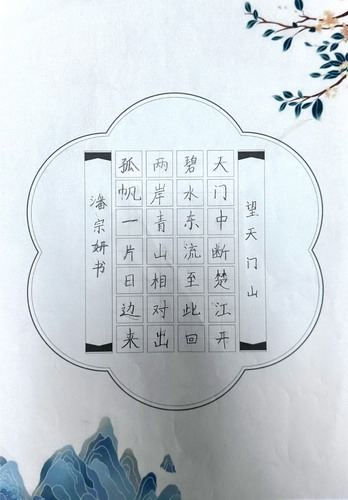 望天门山
天门中断楚江开
碧水东流至此回
两岸青山相对出
孤帆一片日边来
潘宗妍书